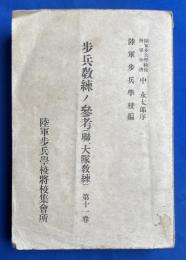 陸軍步兵學校長
陸軍中將 中 永太郎序
陸軍步兵學校編
步兵敎練ノ參考(聯、大隊敎練) 第十一卷
陸軍步兵學校將校集會所